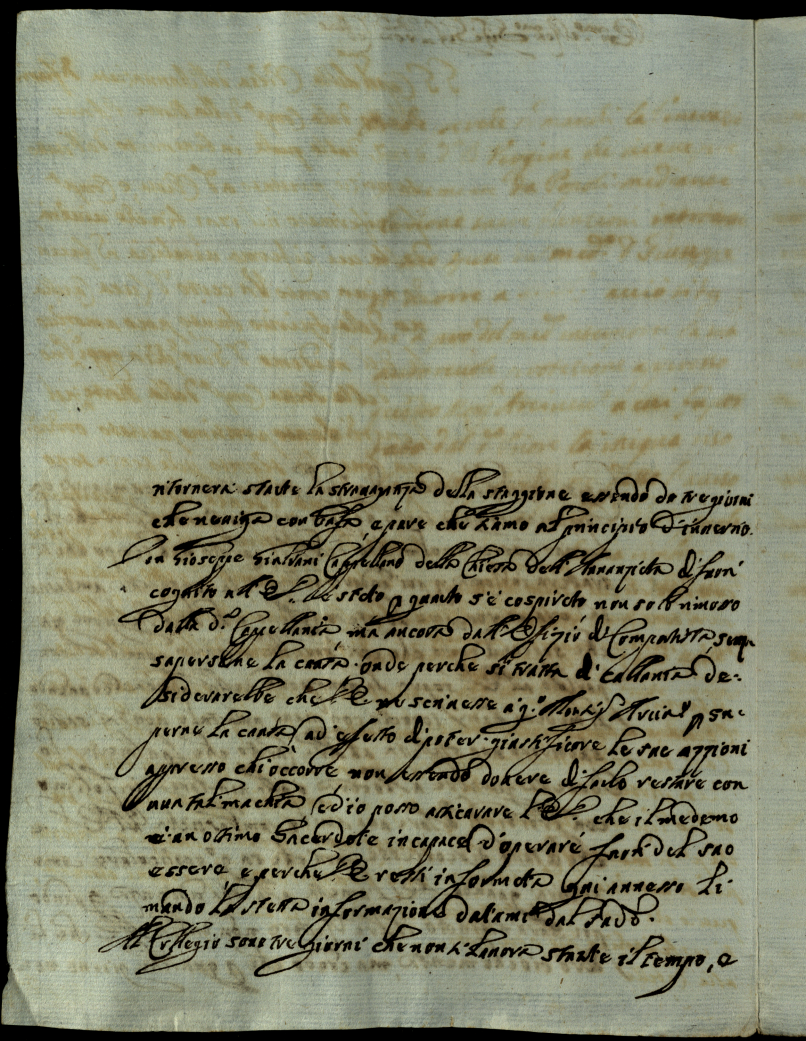 ritornerà stante la stravaganza della staggione essendo da tre giorni
che neviga con bassa, e pare che siamo al principio d'inverno.
Don Gioseppe Galvani Cappellano della Chiesa dell' Annunziata di
cognito all' E. V. è stato p quanto s'è cospirato non solo rimosso
dalla d.ª Cappellania, ma ancora dall' Offizio di Computista, senza
sapersene la causa. onde perche si tratta di de-
siderarebbe che V. E. ne scrivesse a q.º Mons.r p sa-
perne la causa, ad' effetto di poter giustificare le sue azzioni
appresso chi occorre non essendo dovere di farlo restare con
una tal machia, ed io posso assicurare l' E. V. che il medemo
è un ottimo Sacerdote incapace d'operare fuori del suo
essere e perche V. E. resti informata qui annesso li
mando la stessa informazione datami dal sud.º
Al Collegio sono tre giorni che non si lavora stante il tempo, e